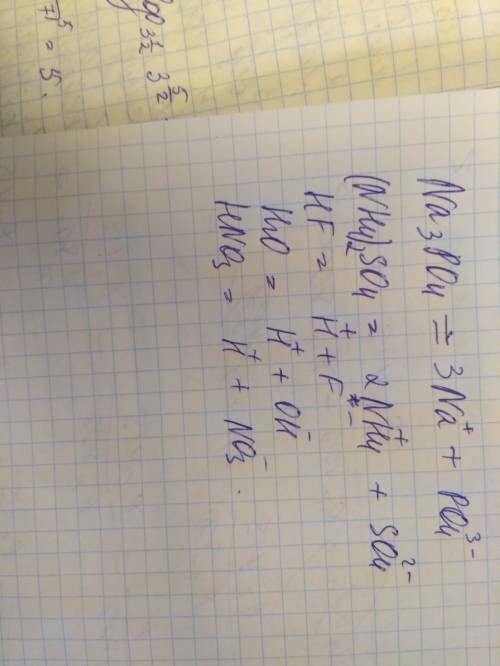 Na₃PO₄ = 3Na⁺ + PO₄³⁻
(NH₄)₂SO₄ = 2NH₄⁺ + SO₄²⁻
HF = H⁺ + F⁻
H₂O = H⁺ + OH⁻
HNO₃ = H⁺ + NO₃⁻.